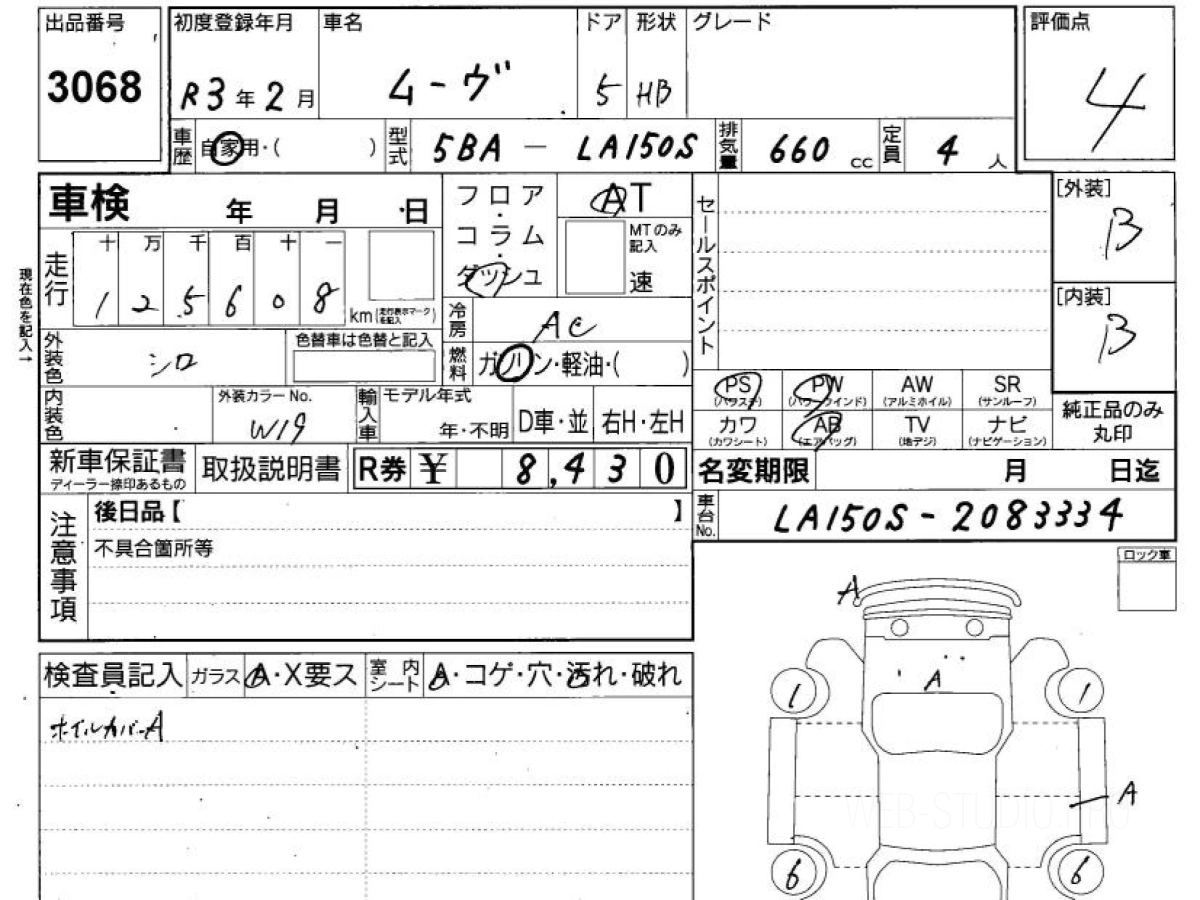 出品番号 初度登録年月 車名 ドア 形状 グレード 評価点
3068 R3年2月 ムーヴ 5 HB 4
車歴 自家用・( ) 型式 5BA - LA150S 排気量 660 cc 定員 4 人
車検 年 月 日 フロア・コラム・ダッシュ AT セールスポイント [外装]
B
MTのみ記入 速
現在色を記入→ 走行 十 万 千 百 十 一
1 2 5 6 0 8 km(走行表示マークを記入)
[内装]
B
冷房 AC
外装色 シロ 色替車は色替と記入 燃料 ガソリン・軽油・( )
PS (パワステ) PW (パワーウインド) AW (アルミホイル) SR (サンルーフ) 純正品のみ丸印
内装色 外装カラーNo. W19 輸入車 モデル年式 年・不明 D車・並 右H・左H
カワ (カワシート) AB (エアバッグ) TV (地デジ) ナビ (ナビゲーション)
新車保証書 ディーラー捺印あるもの 取扱説明書 R券 ¥ 8,430 名変期限 月 日迄
注意事項 後日品【 】 車台No. LA150S-2083334
不具合箇所等
ロック車
A
検査員記入 ガラス A・X要ス 室内シート A・コゲ・穴・汚れ・破れ
A
ホイルカバーA
1 1
A
WEB-STUDIO.PRO
6 6